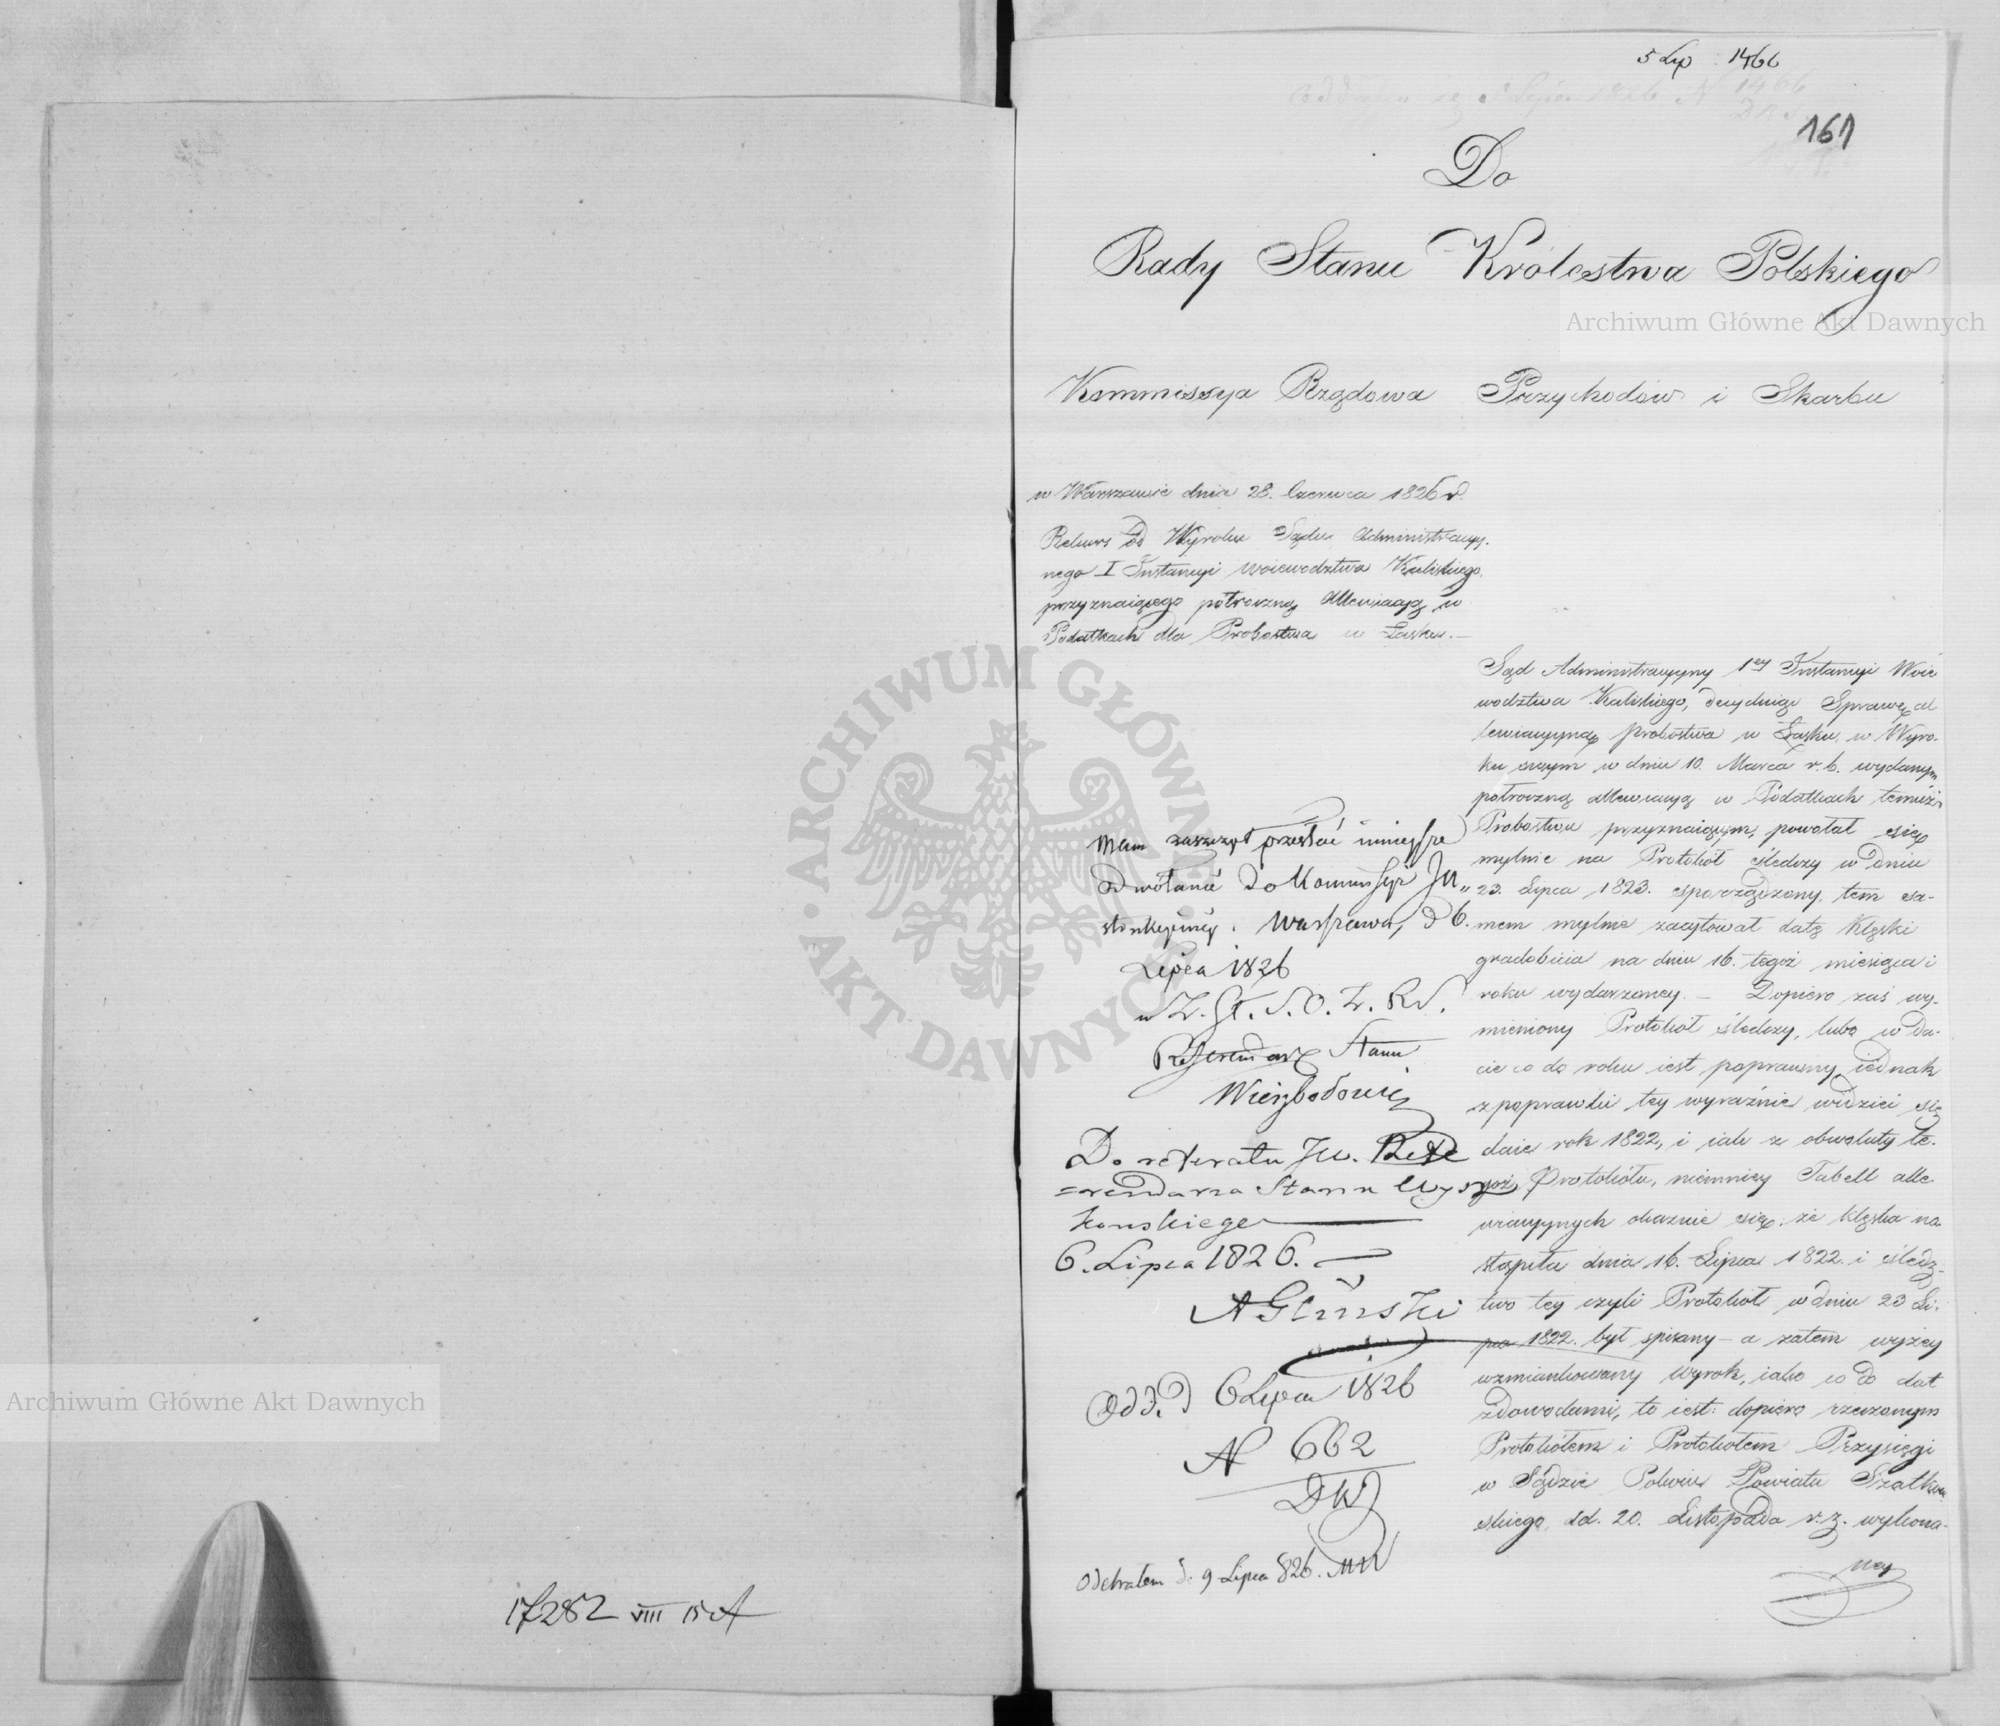 17282 VIII 15 A
5 Lip 1466
161
Do
Rady Stanu Królestwa Polskiego
Kommissya Rządowa Przychodów i Skarbu
w Warszawie dnia 28. Czerwca 1826 r.
Rekurs od Wyroku Sądu Administracyy-
nego I Instancyi Woiewodztwa Kaliskiego,
przyznaiącego półroczną allewiacyą w
Podatkach dla Probostwa w Łasku. —
Sąd Administracyyny 1ey Instancyi Woie
wodztwa Kaliskiego, decyduiąc Sprawę al
lewiacyyną probostwa w Łasku, w Wyro-
ku swym w dniu 10. Marca r. b. wydanym
półroczną allewiacyą w Podatkach temuż
Probostwu przyznaiącym, powołał się
mylnie na Protokół śledczy w dniu
23. Lipca 1823. sporządzony, tem sa-
mem mylnie zacytował datę klęski
gradobicia na dniu 16. tegoż miesiąca i
roku wydarzoney. — Dopiero zaś wy-
mieniony Protokół śledczy, lubo w da-
cie co do roku iest poprawny, iednak
z poprawki tey wyraźnie widzieć się
daie rok 1822, i iak z obwoluty te-
goż Protokółu, niemniey Tabell alle
wiacyynych okazuie się, że klęska na
stąpiła dnia 16. Lipca 1822. i śledz-
two tey czyli Protokół w dniu 23 Li-
pca 1822. był spisany — a zatem wyżey
wzmiankowany wyrok, iako co do dat
z dowodami, to iest: dopiero rzeczonym
Protokółem i Protokołem Przysięgi
w Sądzie Pokoiu Powiatu Szadkow
skiego, dd. 20. Listopada r. z. wykona-
ney
Mam zaszczyt przesłać ninieysze
odwołanie do Kommissyi In„
strukcyiney. Warszawa, d 6.
Lipca 1826
w Z. St. S. O. Z. RS.
Referendarz Stanu
Wierzbołowicz
Do referatu JW. Refe
=rendarza Stanu Wy
kowskiego
6. Lipca 1826. —
A Gliński
Odd. D 6 Lipca 1826
N 662
DKJ
Odebrałem d. 9 Lipca 826.